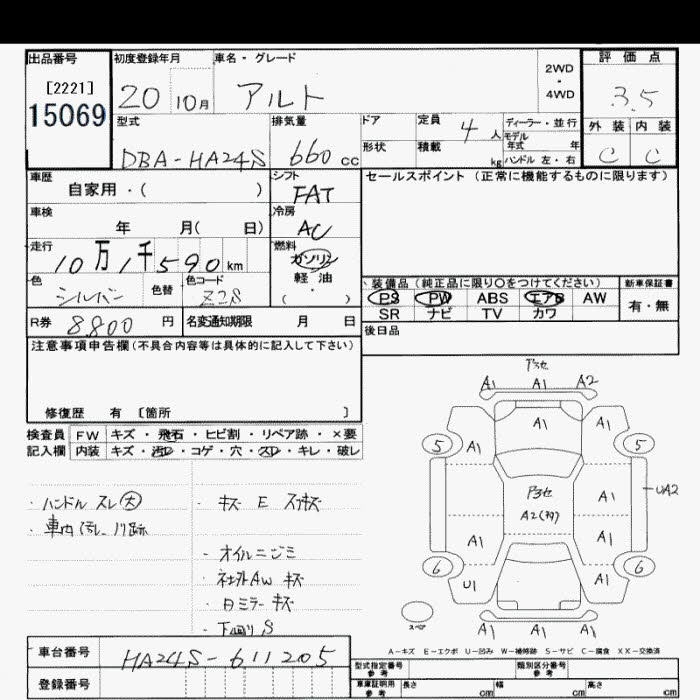 出品番号 初度登録年月 車名・グレード 2WD・4WD 評価点
[2221]
15069
20 10月 アルト 3.5
型式 排気量 ドア 定員 4人 ディーラー・並行 外装 内装
モデル年式 年
DBA-HA24S 660cc 形状 積載 kg ハンドル 左・右 C C
車歴 シフト セールスポイント (正常に機能するものに限ります)
自家用・( ) FAT
車検 冷房
年 月( 日) AC
走行 燃料
10万1千590km ガソリン
軽油
・
( )
色 色替 色コード
シルバー Z2S
装備品 (純正品に限り○をつけてください) 新車保証書
PS PW ABS エアB AW 有・無
SR ナビ TV カワ
R券 8,800円 名変通知期限 月 日
後日品
注意事項申告欄(不具合内容等は具体的に記入して下さい)
修復歴 有 〔箇所 〕
検査員 FW キズ・飛石・ヒビ割・リペア跡・×要
記入欄 内装 キズ・汚れ・コゲ・穴・スレ・キレ・破レ
・ハンドル スレ 大
・車内 汚レ
・キズ E
・オイルニジミ
・社外AW キズ
・ミラーキズ
・下回り S
A1 A1 A2
A1 A1
5 5
A1
UA2
A2
A1 A1
6 6
U1 A1
A1 A1 A1
スペア
A-キズ E-エクボ U-凹み W-補修跡 S-サビ C-腐食 XX-交換済
車台番号 HA24S-611205
型式指定番号 参考 類別区分番号 参考
登録番号
車庫証明用 参考 長さ cm 幅 cm 高さ cm